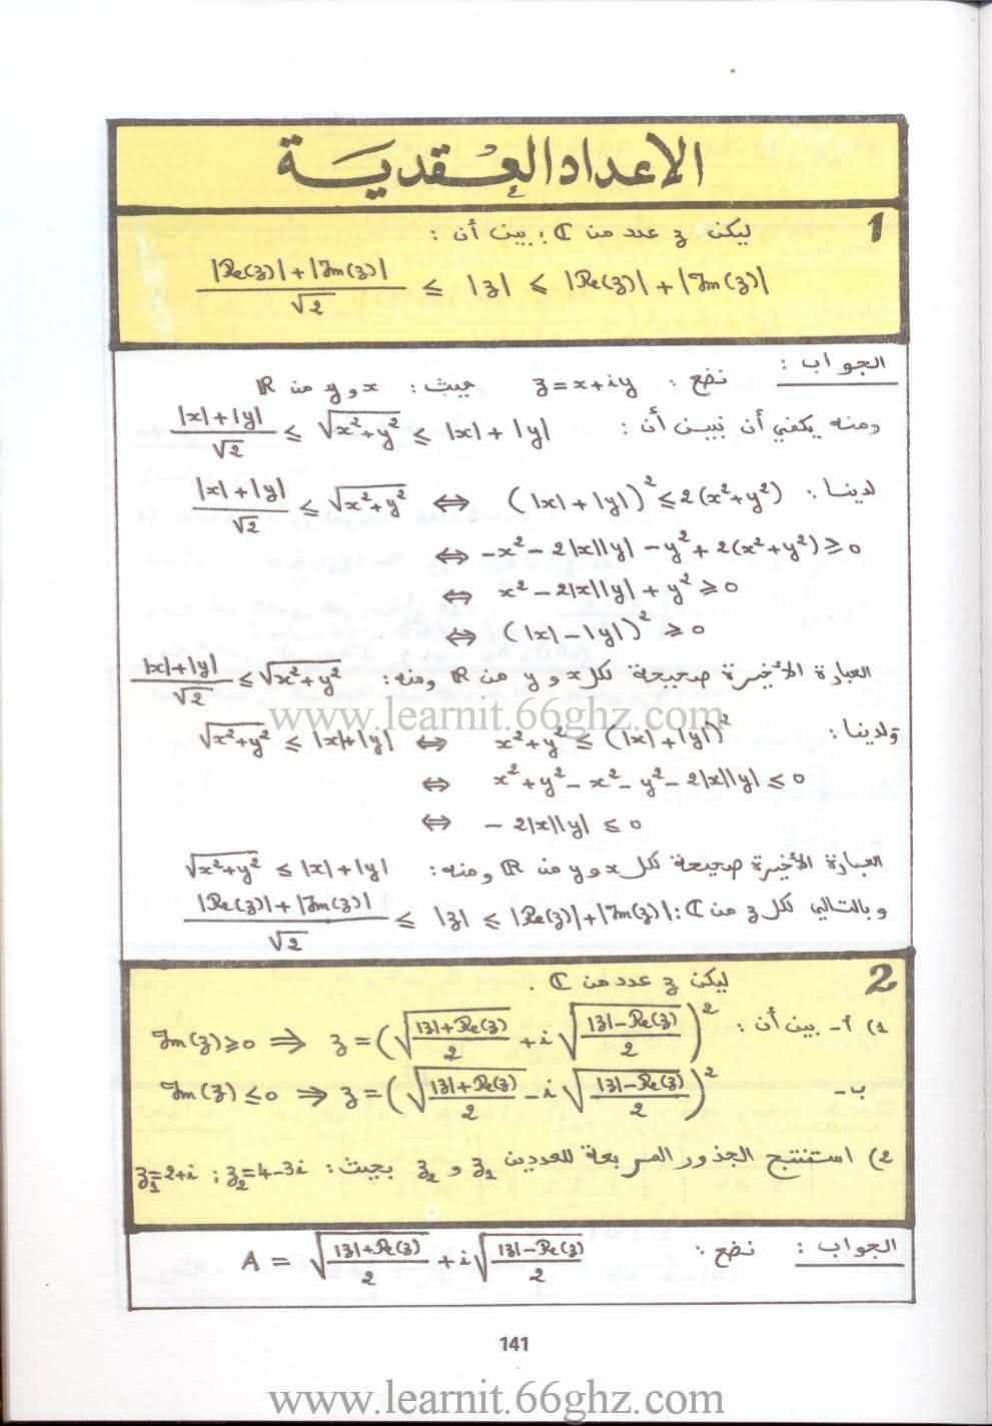 الأعداد العُقدية
1 ليكن z عدد من ℂ ؛ بين أن :
(|Re(z)| + |Im(z)|)/√2 ≤ |z| ≤ |Re(z)| + |Im(z)|
الجواب : نضع : z = x + iy حيث : x و y من ℝ
ومنه يكفي أن نبين أن : (|x| + |y|)/√2 ≤ √(x²+y²) ≤ |x| + |y|
لدينا : (|x| + |y|)/√2 ≤ √(x²+y²) ⇔ (|x| + |y|)² ≤ 2(x²+y²)
⇔ -x² - 2|x||y| - y² + 2(x²+y²) ≥ 0
⇔ x² - 2|x||y| + y² ≥ 0
⇔ (|x| - |y|)² ≥ 0
العبارة الأخيرة صحيحة لكل x و y من ℝ ومنه : (|x|+|y|)/√2 ≤ √(x²+y²)
www.learnit.66ghz.com
ولدينا : √(x²+y²) ≤ |x|+|y| ⇔ x²+y² ≤ (|x|+|y|)²
⇔ x²+y² - x² - y² - 2|x||y| ≤ 0
⇔ - 2|x||y| ≤ 0
العبارة الأخيرة صحيحة لكل x و y من ℝ ومنه : √(x²+y²) ≤ |x| + |y|
وبالتالي لكل z من ℂ : (|Re(z)| + |Im(z)|)/√2 ≤ |z| ≤ |Re(z)| + |Im(z)|
2 ليكن z عدد من ℂ .
1) أ- بين أن : Im(z) ≥ 0 ⇒ z = (√((|z|+Re(z))/2) + i√((|z|-Re(z))/2))²
ب- Im(z) ≤ 0 ⇒ z = (√((|z|+Re(z))/2) - i√((|z|-Re(z))/2))²
2) استنتج الجذور المربعة للعددين z₁ و z₂ بحيث : z₁=2+i ; z₂=4-3i
الجواب : نضع : A = √((|z|+Re(z))/2) + i√((|z|-Re(z))/2)
141
www.learnit.66ghz.com